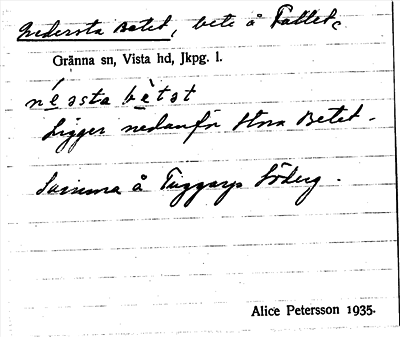 Nedersta Betet, bete å Fallet.
Gränna sn, Vista hd, Jkpg. l.
nẹ́ssta bètət
Ligger nedanför Stora Betet.
Samma å Tuggarps Söderg.
Alice Petersson 1935.